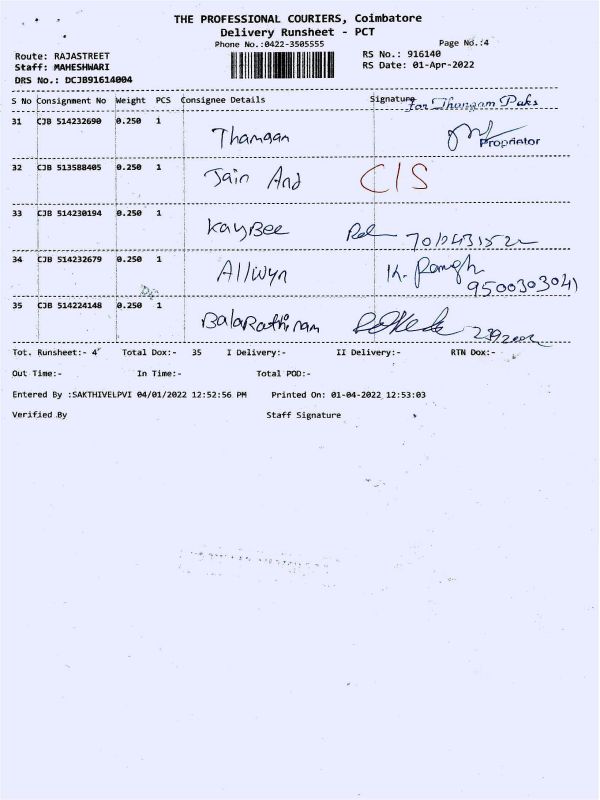 THE PROFESSIONAL COURIERS, Coimbatore
Delivery Runsheet - PCT
Phone No.:0422-3505555
Page No.:4
Route: RAJASTREET
RS No.: 916140
Staff: MAHESHWARI
RS Date: 01-Apr-2022
DRS No.: DCJB91614004
S No Consignment No Weight PCS Consignee Details Signature
For Thangam Paks
31 CJB 514232690 0.250 1
Proprietor
32 CJB 513588405 0.250 1 Jain And C/S
33 CJB 514230194 0.250 1 KayBee
34 CJB 514232679 0.250 1 Allwyn K.
9500303041
35 CJB 514224148 0.250 1 BalaRathinam
Tot. Runsheet:- 4 Total Dox:- 35 I Delivery:- II Delivery:- RTN Dox:-
Out Time:- In Time:- Total POD:-
Entered By :SAKTHIVELPVI 04/01/2022 12:52:56 PM Printed On: 01-04-2022 12:53:03
Verified By Staff Signature